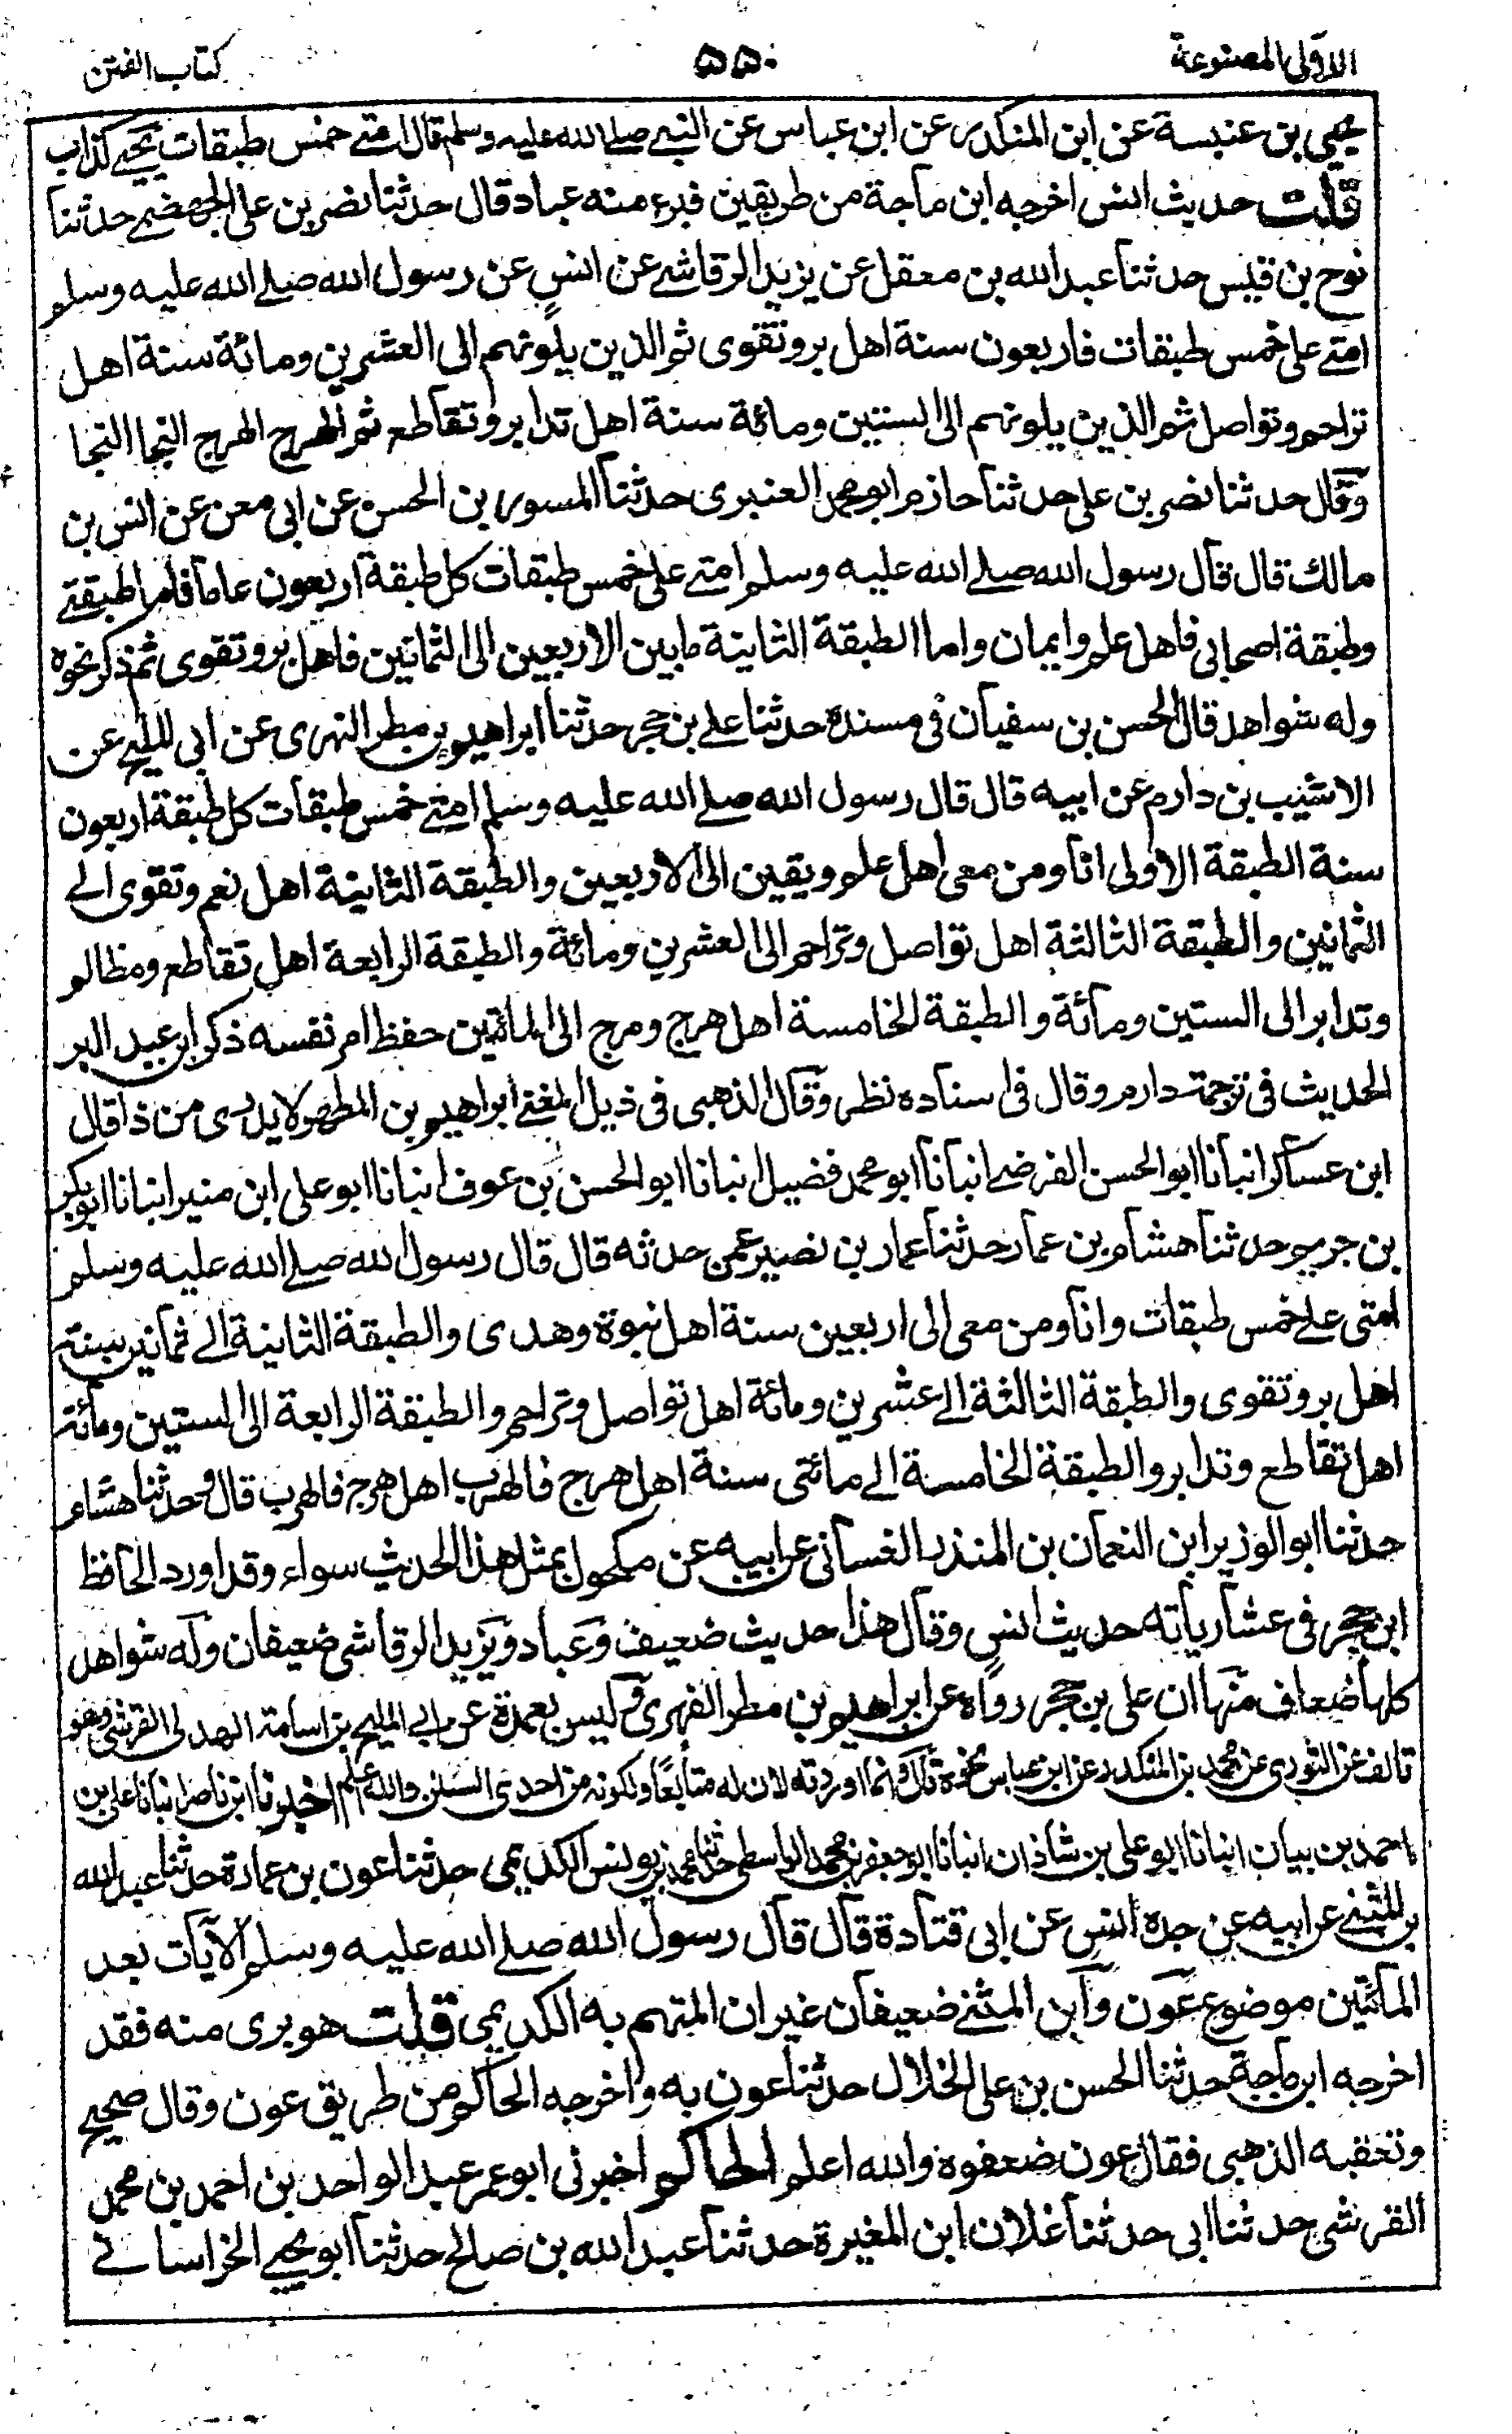 اللآلى المصنوعة ۵۵۰ كتاب الفتن
يحيى بن عنبسة عن ابن المنكدر عن ابن عباس عن النبي صلى الله عليه وسلم قال امتى خمس طبقات يحيى كذاب
قلت حديث انس اخرجه ابن ماجة من طريقين فبرء منه عباد قال حدثنا نصر بن على الجهضمي حدثنا
نوح بن قيس حدثنا عبد الله بن معقل عن يزيد الرقاشي عن انس عن رسول الله صلى الله عليه وسلم
امتى على خمس طبقات فاربعون سنة اهل بر وتقوى ثم الذين يلونهم الى العشرين ومائة سنة اهل
تراحم وتواصل ثم الذين يلونهم الى الستين ومائة سنة اهل تدابر وتقاطع ثم الهرج الهرج النجا النجا
وقال حدثنا نصر بن على حدثنا حازم ابو محمد العنبرى حدثنا المسور بن الحسن عن ابى معن عن انس بن
مالك قال قال رسول الله صلى الله عليه وسلم امتى على خمس طبقات كل طبقة اربعون عاما فاما طبقتى
وطبقة اصحابى فاهل علم وايمان واما الطبقة الثانية ما بين الاربعين الى الثمانين فاهل بر وتقوى ثم ذكر نحوه
وله شواهد قال الحسن بن سفيان فى مسنده حدثنا على بن حجر حدثنا ابراهيم بن مطر النهرى عن ابى المليح عن
الاشيب بن دارم عن ابيه قال قال رسول الله صلى الله عليه وسلم امتى خمس طبقات كل طبقة اربعون
سنة الطبقة الاولى انا ومن معى اهل علم ويقين الى الاربعين والطبقة الثانية اهل نعم وتقوى الى
الثمانين والطبقة الثالثة اهل تواصل وتراحم الى العشرين ومائة والطبقة الرابعة اهل تقاطع ومظالم
وتدابر الى الستين ومائة والطبقة الخامسة اهل هرج ومرج الى المائتين حفظ امر نفسه ذكر ابن عبد البر
الحديث فى ترجمة دارم وقال فى اسناده نظر وقال الذهبى فى ذيل المغنى ابراهيم بن المطهر لا يدرى من ذا قال
ابن عساكر انبانا ابو الحسن الفرضي انبانا ابو محمد فضيل انبانا ابو الحسن بن عوف انبانا ابو على ابن منير انبانا ابو بكر
بن جريم حدثنا هشام بن عمار حدثنا عمار بن نصير عمن حدثه قال قال رسول الله صلى الله عليه وسلم
امتى على خمس طبقات وانا ومن معى الى اربعين سنة اهل نبوة وهدى والطبقة الثانية الى ثمانين سنة
اهل بر وتقوى والطبقة الثالثة الى عشرين ومائة اهل تواصل وتراحم والطبقة الرابعة الى الستين ومائة
اهل تقاطع وتدابر والطبقة الخامسة الى مائتى سنة اهل هرج فالهرب اهل هرج فالهرب قال وحدثنا هشام
حدثنا ابو الوزير ابن النعمان بن المنذر الغسانى عن ابيه عن مكحول بمثل هذا الحديث سواء وقد اورد الحافظ
ابن حجر فى عشارياته حديث انس وقال هذا حديث ضعيف وعباد ويزيد الرقاشى ضعيفان وله شواهد
كلها ضعاف منها ان على بن حجر رواه عن ابراهيم بن مطر الفهرى وليس بعمدة عن ابى المليح بن اسامة الهدلى القرشى وهو
تالف عن الثورى عن محمد بن المنكدر عن ابن عباس نحوه قال وانما اوردته لان له متابعا ولكونه من احدى السنن والله اعلم اخبرنا ابن ناصر انبانا على بن
احمد بن بيان انبانا ابو على بن شاذان انبانا ابو جعفر بن محمد الواسطى حدثنا محمد بن يونس الكديمى حدثنا عون بن عمارة حدثنا عبد الله
بن المثنى عن ابيه عن جده انس عن ابى قتادة قال قال رسول الله صلى الله عليه وسلم الآيات بعد
المائتين موضوع عون وابن المثنى ضعيفان غير ان المتهم به الكديمى قلت هو برى منه فقد
اخرجه ابن ماجة حدثنا الحسن بن على الخلال حدثنا عون به واخرجه الحاكم من طريق عون وقال صحيح
وتعقبه الذهبى فقال عون ضعفوه والله اعلم الحاكم اخبرنى ابو عمر عبد الواحد بن احمد بن محمد
القرشى حدثنا ابى حدثنا غلان ابن المغيرة حدثنا عبد الله بن صالح حدثنا ابو يحيى الخراسانى